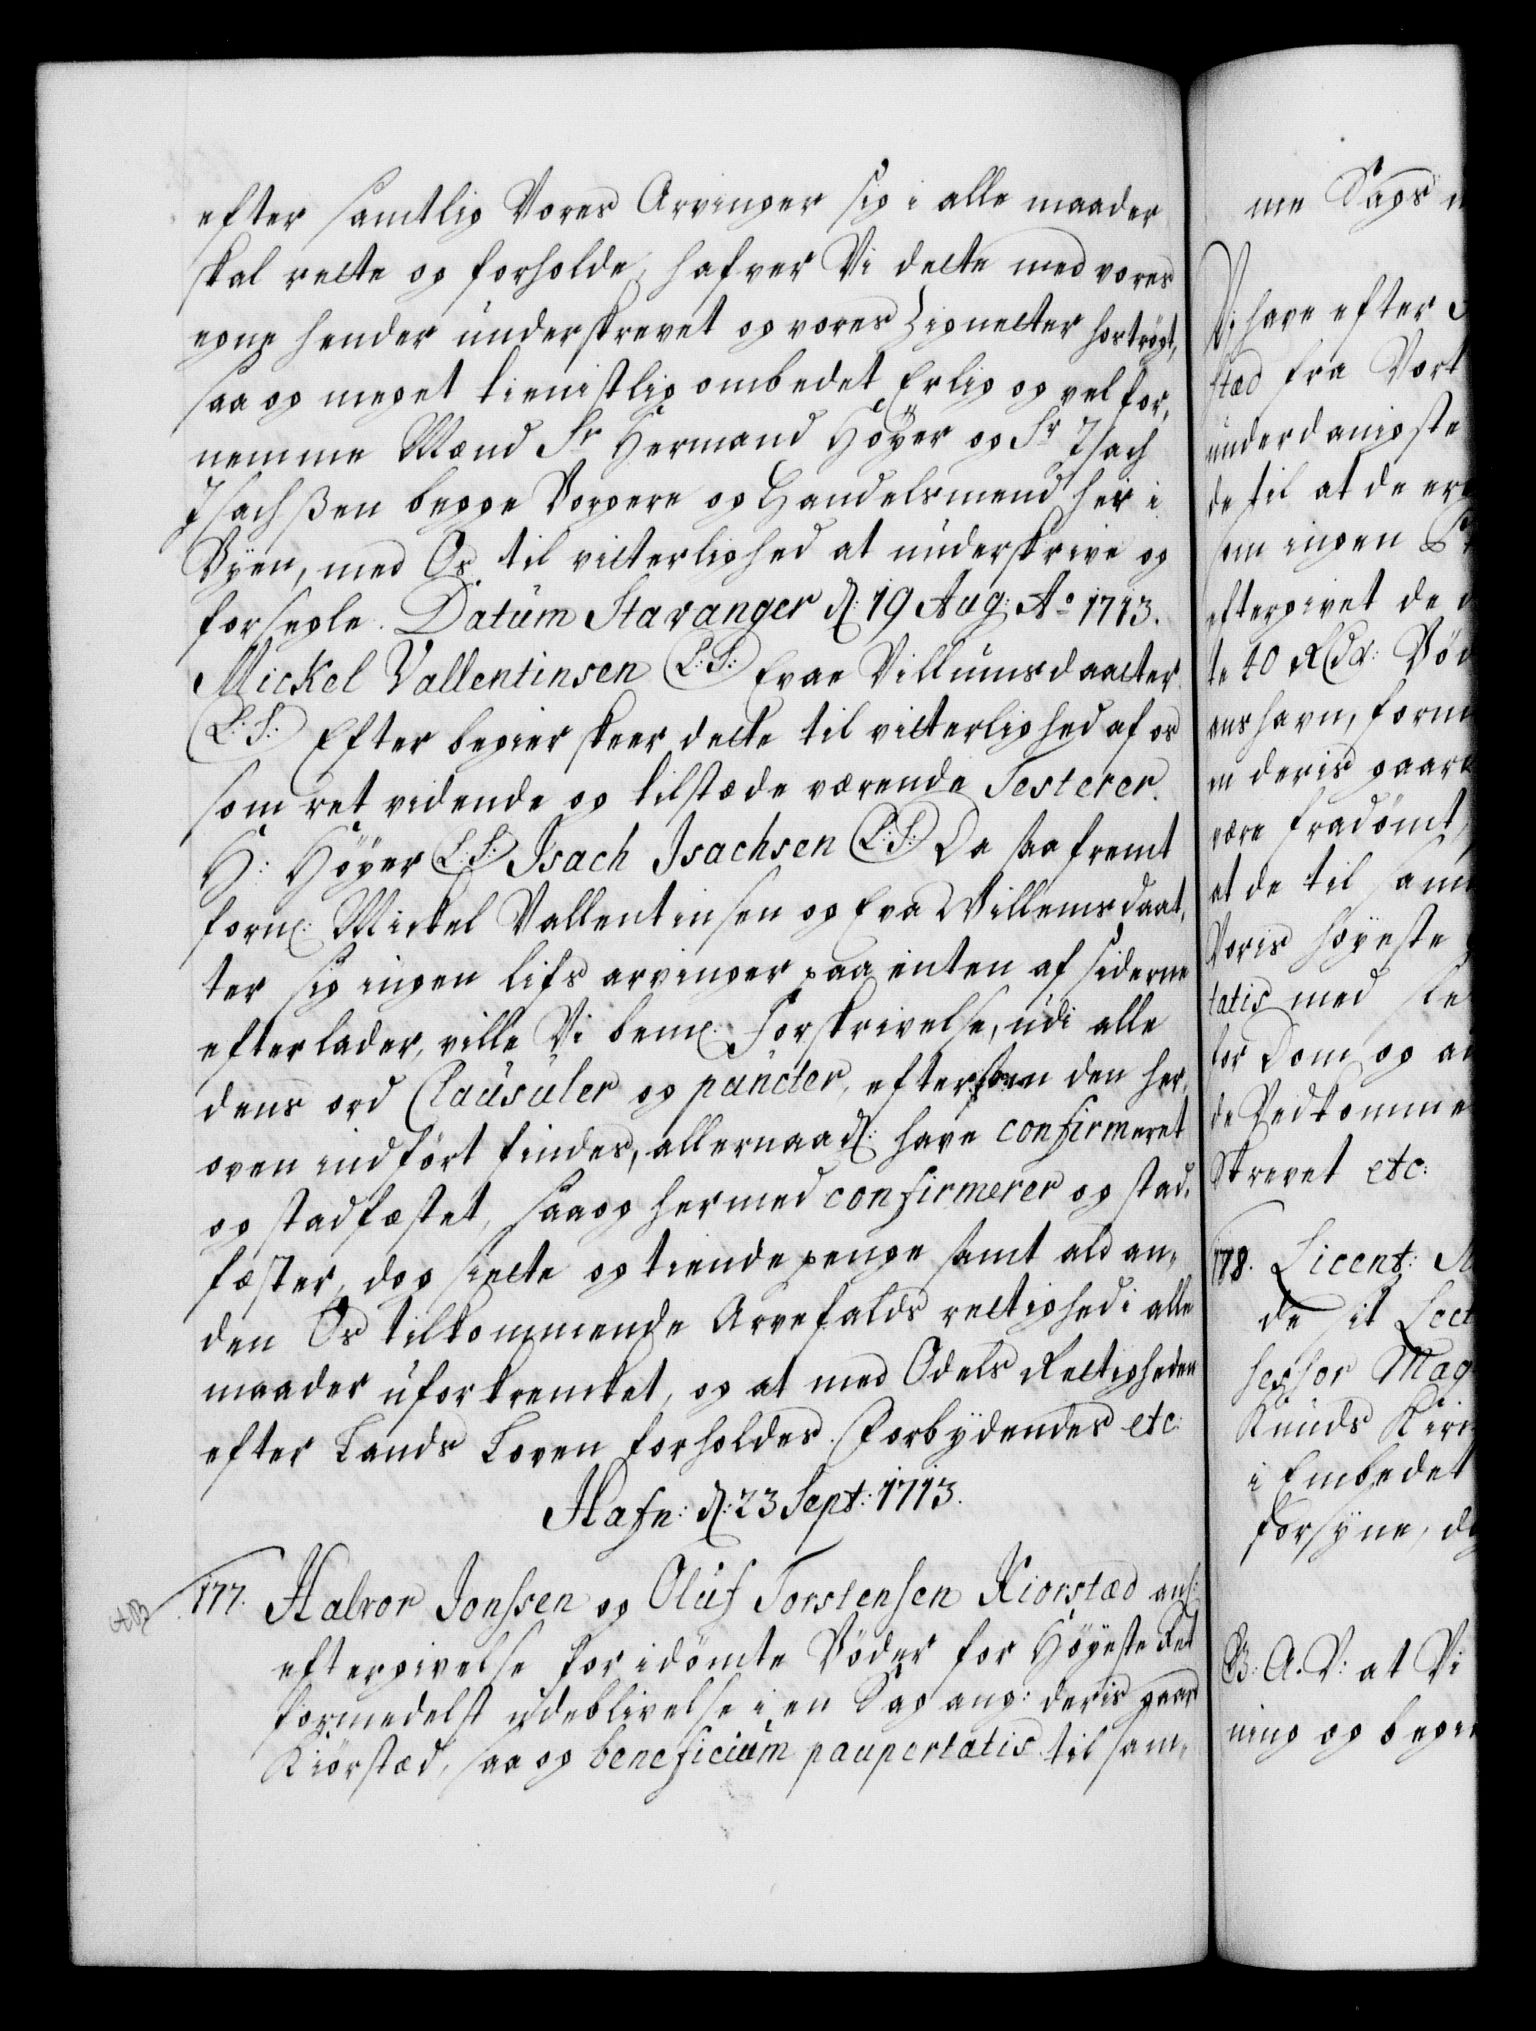 efter samtlig Vores Arvinger sig i alle maader
skal rette og forholde, hafver Vi dette med vores
egne hender underskrevet og vores Zignetter hostrÿgt,
saa og meget tienistlig ombedet Erlig og vel for,
nemme Mænd Sr Hermand Höÿer og Sr Isach
Isachßen begge Borgere og Handelsmend her i
Bÿen, med Os til vitterlighed at underskrive og
forsegle. Datum Stavanger d: 19 Aug: Ao 1713.
Mickel Vallentinsen (L:S:) Evae Villumsdaatter
(L:S:) Efter begier skeer dette til vitterlighed af os
som ret vidende og tilstæde værende Testerer.
H: Höÿer (L:S:) Isach Isachsen (L:S:) Da saa fremt
forne: Mickel Vallentinsen og Eva Willemsdaat,
ter sig ingen lifs arvinger paa enten af siderne
efterlader, ville Vi beme: Forskrivelse, udi alle
dens ord Clausuler og puncter, eftersom den her,
oven indført findes, allernaad: have confirmeret
og stadfæstet, saa og hermed confirmerer og stad,
fæster, dog siette og tiende penge samt ald an,
den Os tilkommende Arvefalds rettighed i alle
maader uforkrenket, og at med Odels Rettigheden
efter Lands Loven forholdes. Forbÿdendes etc:
Hafn: d: 23 Sept: 1713.
177. Halvor Jonssen og Oluf Torstensen Kiorstæd anh:
eftergivelse for idömte Böder for Höÿeste Ret
formedelst udeblivelse i en Sag ang: deris gaard
Kiörstæd, saa og beneficium paupertatis til sam,
me Sags
Vi have efter
stæd fra Vort
underdanigste
de til at de ere
som ingen
eftergivet de
te 40 Rdr: Böd
ans havn, form
en deris gaard
være fradömt,
at de til sam
Voris höÿeste
tatis med
for Dom og
de Vedkomme
Skrevet etc:
178. Licent:
de sit Lect
fessor Mag
Knuds Kirc
i Embedet
forsÿne, do
G: A. V: at Vi
ning og begie